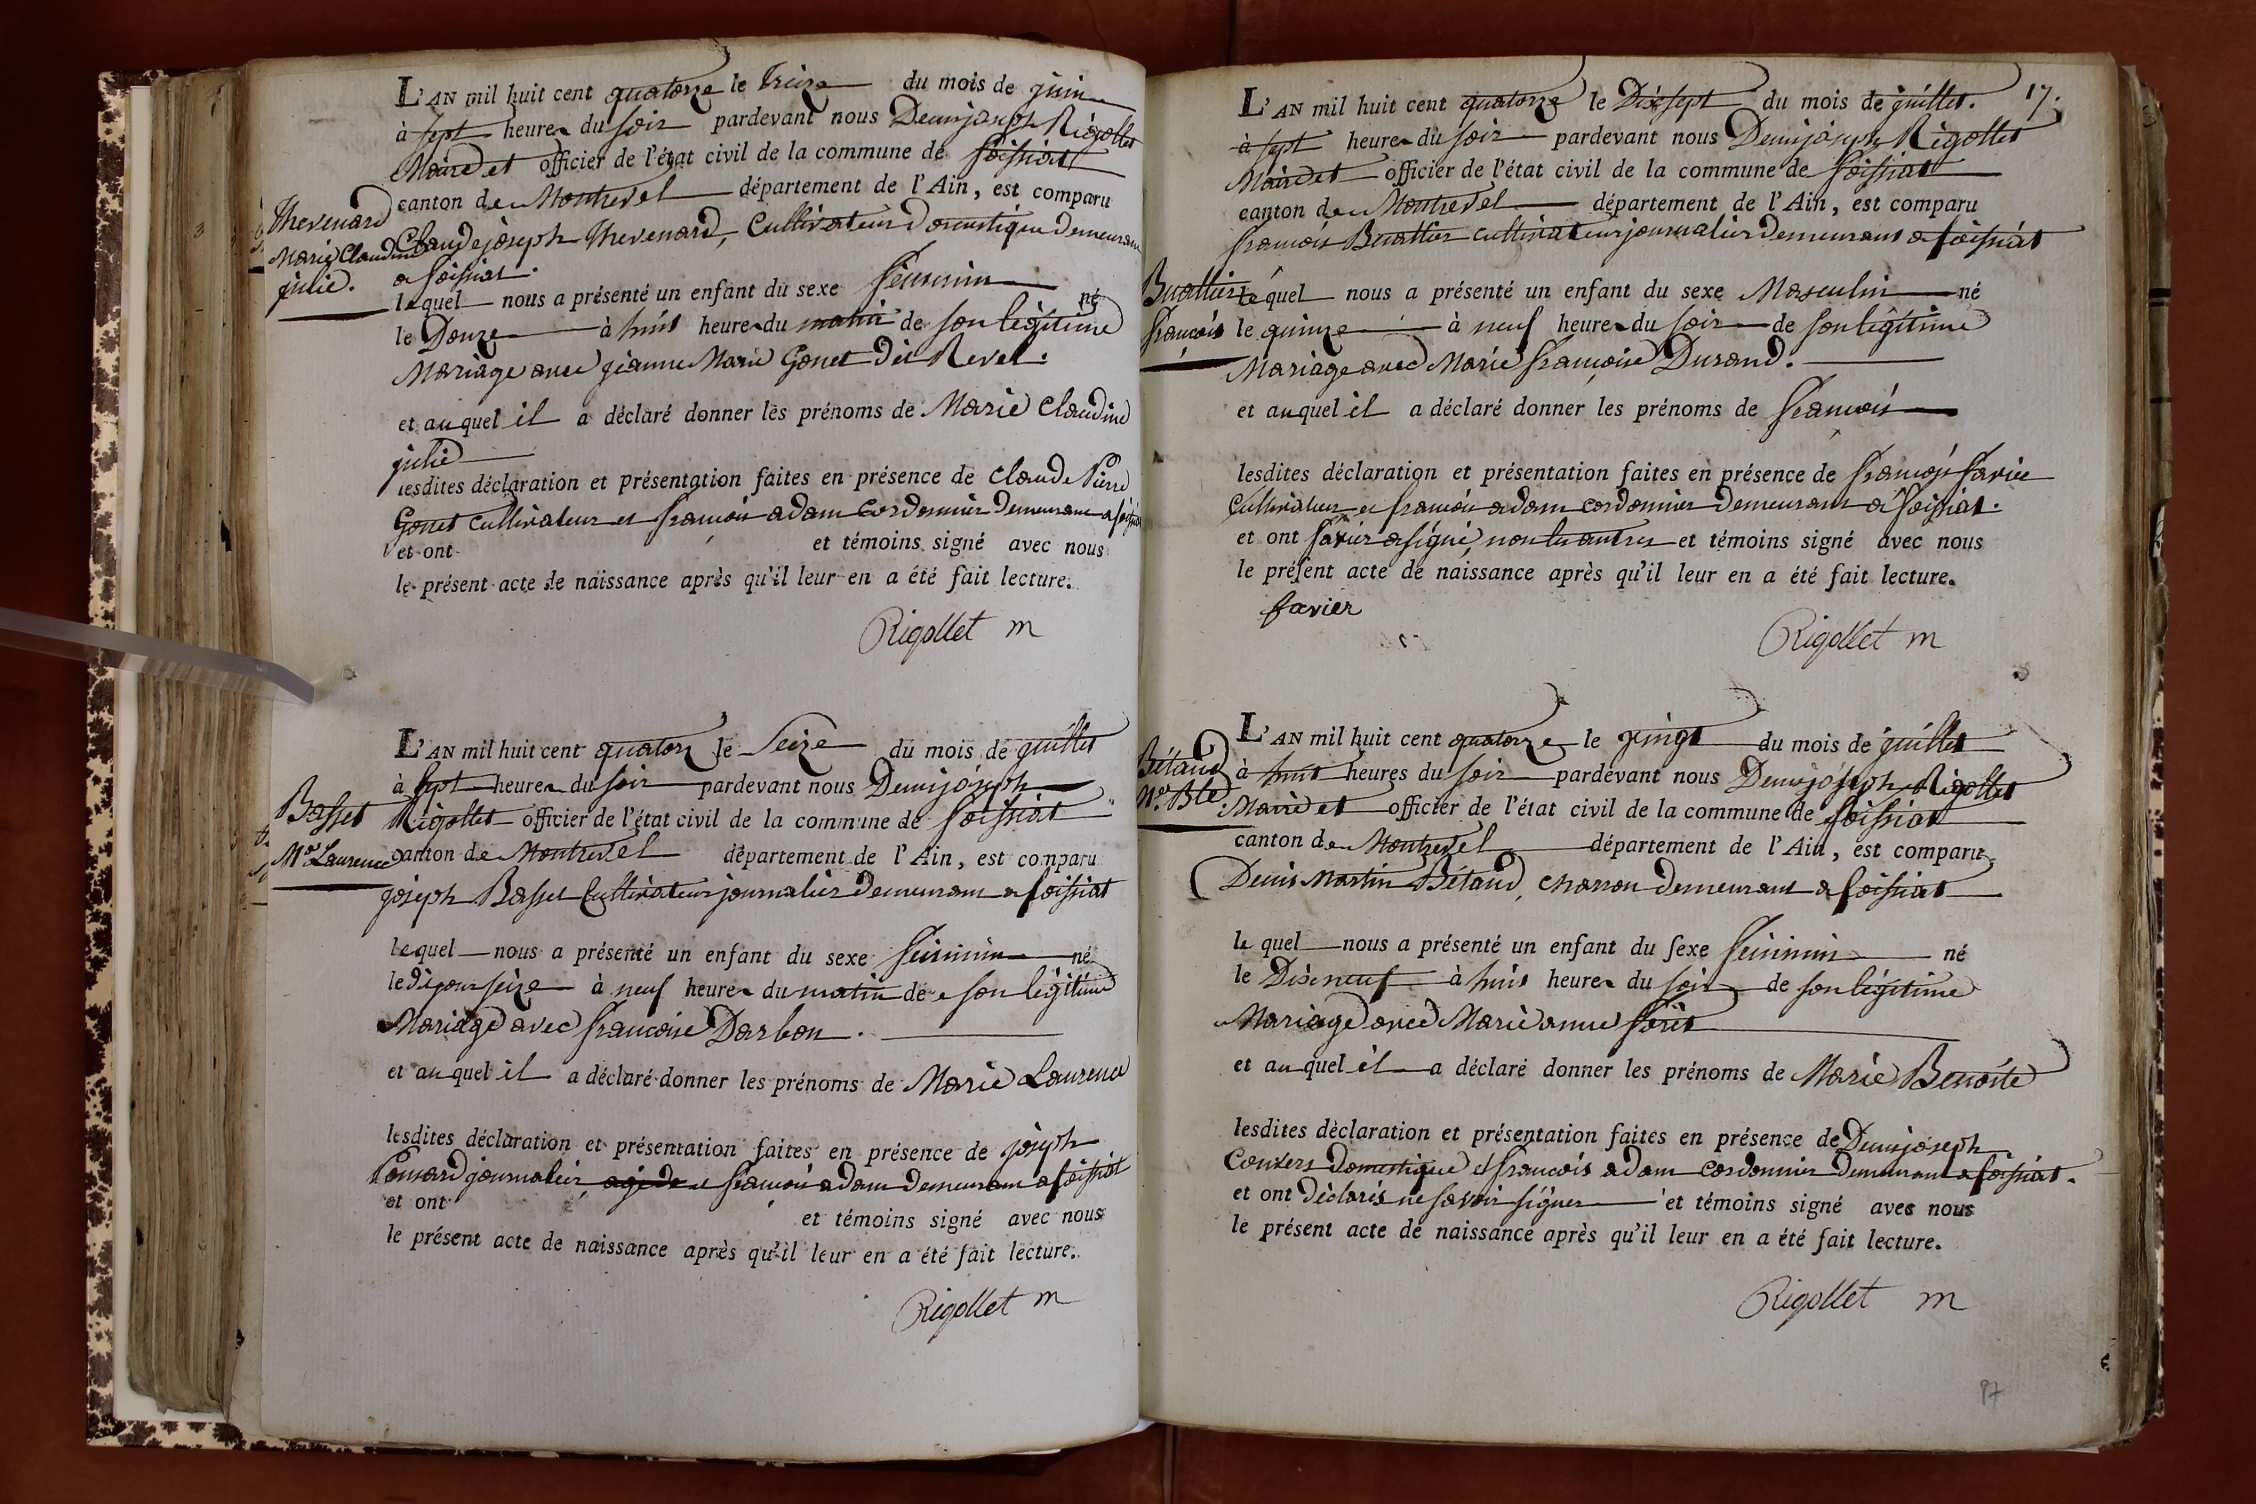 L'AN mil huit cent quatorze le treize du mois de juin
à sept heures du soir pardevant nous Denis joseph Rigollet
Maire et officier de l'état civil de la commune de foissiat
canton de Montrevel département de l'Ain, est comparu
Thevenard
Marie Claudine
julie.
Claude joseph Thevenard, Cultivateur Domestique demeurant
a foissiat.
lequel nous a présenté un enfant du sexe féminin né
le Douze à huit heures du matin de son légitime
Mariage avec jeanne Marie Gonet dit Revel.
et auquel il a déclaré donner les prénoms de Marie Claudine
julie
lesdites déclaration et présentation faites en présence de Claude Pierre
Gonet cultivateur et françois adam cordonnier demeurant a foissiat
et ont et témoins signé avec nous
le présent acte de naissance après qu'il leur en a été fait lecture.
Rigollet m
L'AN mil huit cent quatorz le Seize du mois de juillet
à sept heures du soir pardevant nous Denis joseph
Basset
Mie Laurence
Rigollet officier de l'état civil de la commune de foissiat
canton de Montrevel département de l'Ain, est comparu
joseph Basset Cultivateur journalier demeurant a foissiat
lequel nous a présenté un enfant du sexe féminin né
le dijour seize à neuf heures du matin de son légitime
Mariage avec francoise Darbon.
et auquel il a déclaré donner les prénoms de Marie Laurence
lesdites déclaration et présentation faites en présence de joseph
journalier, agé de et francois adam demeurant a foissiat
et ont et témoins signé avec nous
le présent acte de naissance après qu'il leur en a été fait lecture.
Rigollet m
17.
L'AN mil huit cent quatorze le Dix sept du mois de juillet.
à sept heures du soir pardevant nous Denis joseph Rigollet
Maire et officier de l'état civil de la commune de foissiat
canton de Montrevel département de l'Ain, est comparu
francois Buattier cultivateur journalier demeurant a foissiat
Buattier
françois
le quel nous a présenté un enfant du sexe Masculin né
le quinze à neuf heures du soir de son légitime
Mariage avec Marie françoise Durand.
et auquel il a déclaré donner les prénoms de francois
lesdites déclaration et présentation faites en présence de francois favier
Cultivateur et francois adam cordonnier demeurant a foissiat.
et ont favier a signé, non les autres et témoins signé avec nous
le présent acte de naissance après qu'il leur en a été fait lecture.
favier
Rigollet m
L'AN mil huit cent quatorze le vingt du mois de juillet
Bétaud
Mie Bte.
à huit heures du soir pardevant nous Denis joseph Rigollet
Maire et officier de l'état civil de la commune de foissiat
canton de Montrevel département de l'Ain, est comparu
Denis Martin Bétaud, charron demeurant a foissiat
le quel nous a présenté un enfant du sexe féminin né
le Dix neuf à huit heures du soir de son légitime
Mariage avec Marie anne
et auquel il a déclaré donner les prénoms de Marie Benoite
lesdites déclaration et présentation faites en présence de Denis joseph
Convers Domestique et francois adam cordonnier demeurant a foissiat.
et ont déclarés ne savoir signer et témoins signé avec nous
le présent acte de naissance après qu'il leur en a été fait lecture.
Rigollet m